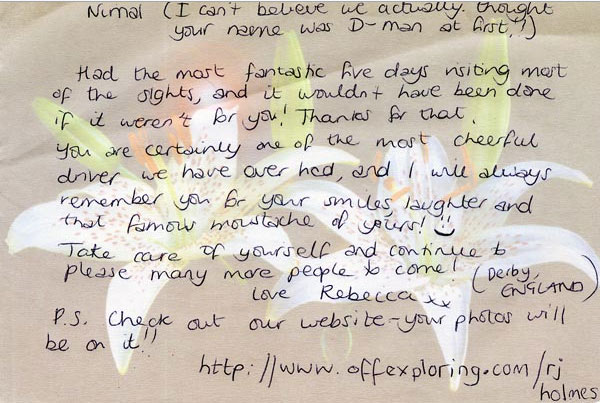 Nimal (I can't believe we actually thought
your name was D-man at first!!)
Had the most fantastic five days visiting most
of the sights, and it wouldn't have been done
if it weren't for you! Thanks for that.
You are certainly one of the most cheerful
driver we have ever had, and I will always
remember you for your smiles, laughter and
that famous moustache of yours!
Take care of yourself and continue to
please many more people to come!
love Rebecca xx (Derby, ENGLAND)
P.S. Check out our website - your photos will
be on it!!
http://www.offexploring.com/rj
holmes